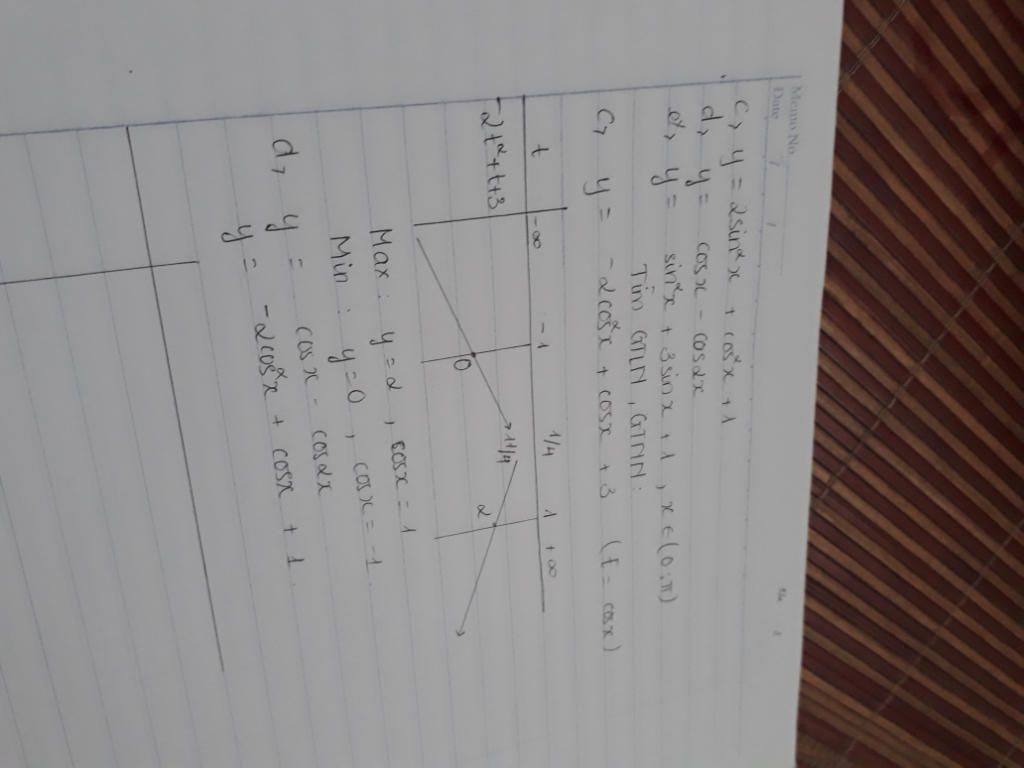 Memo No.
Date / /
c, y = 2sin²x + cos²x + 1
d, y = cosx - cos2x
e, y = sin²x + 3sinx + 1, x ∈ (0, π)
Tìm GTLN, GTNN.
c, y = -2cos²x + cosx + 3 (t = cosx)
t -∞ -1 1/4 1 +∞
2t² + t + 3 0 11/4 2
Max: y = 2, cosx = 1
Min: y = 0, cosx = -1.
d, y = cosx - cos2x
y = -2cos²x + cosx + 1.